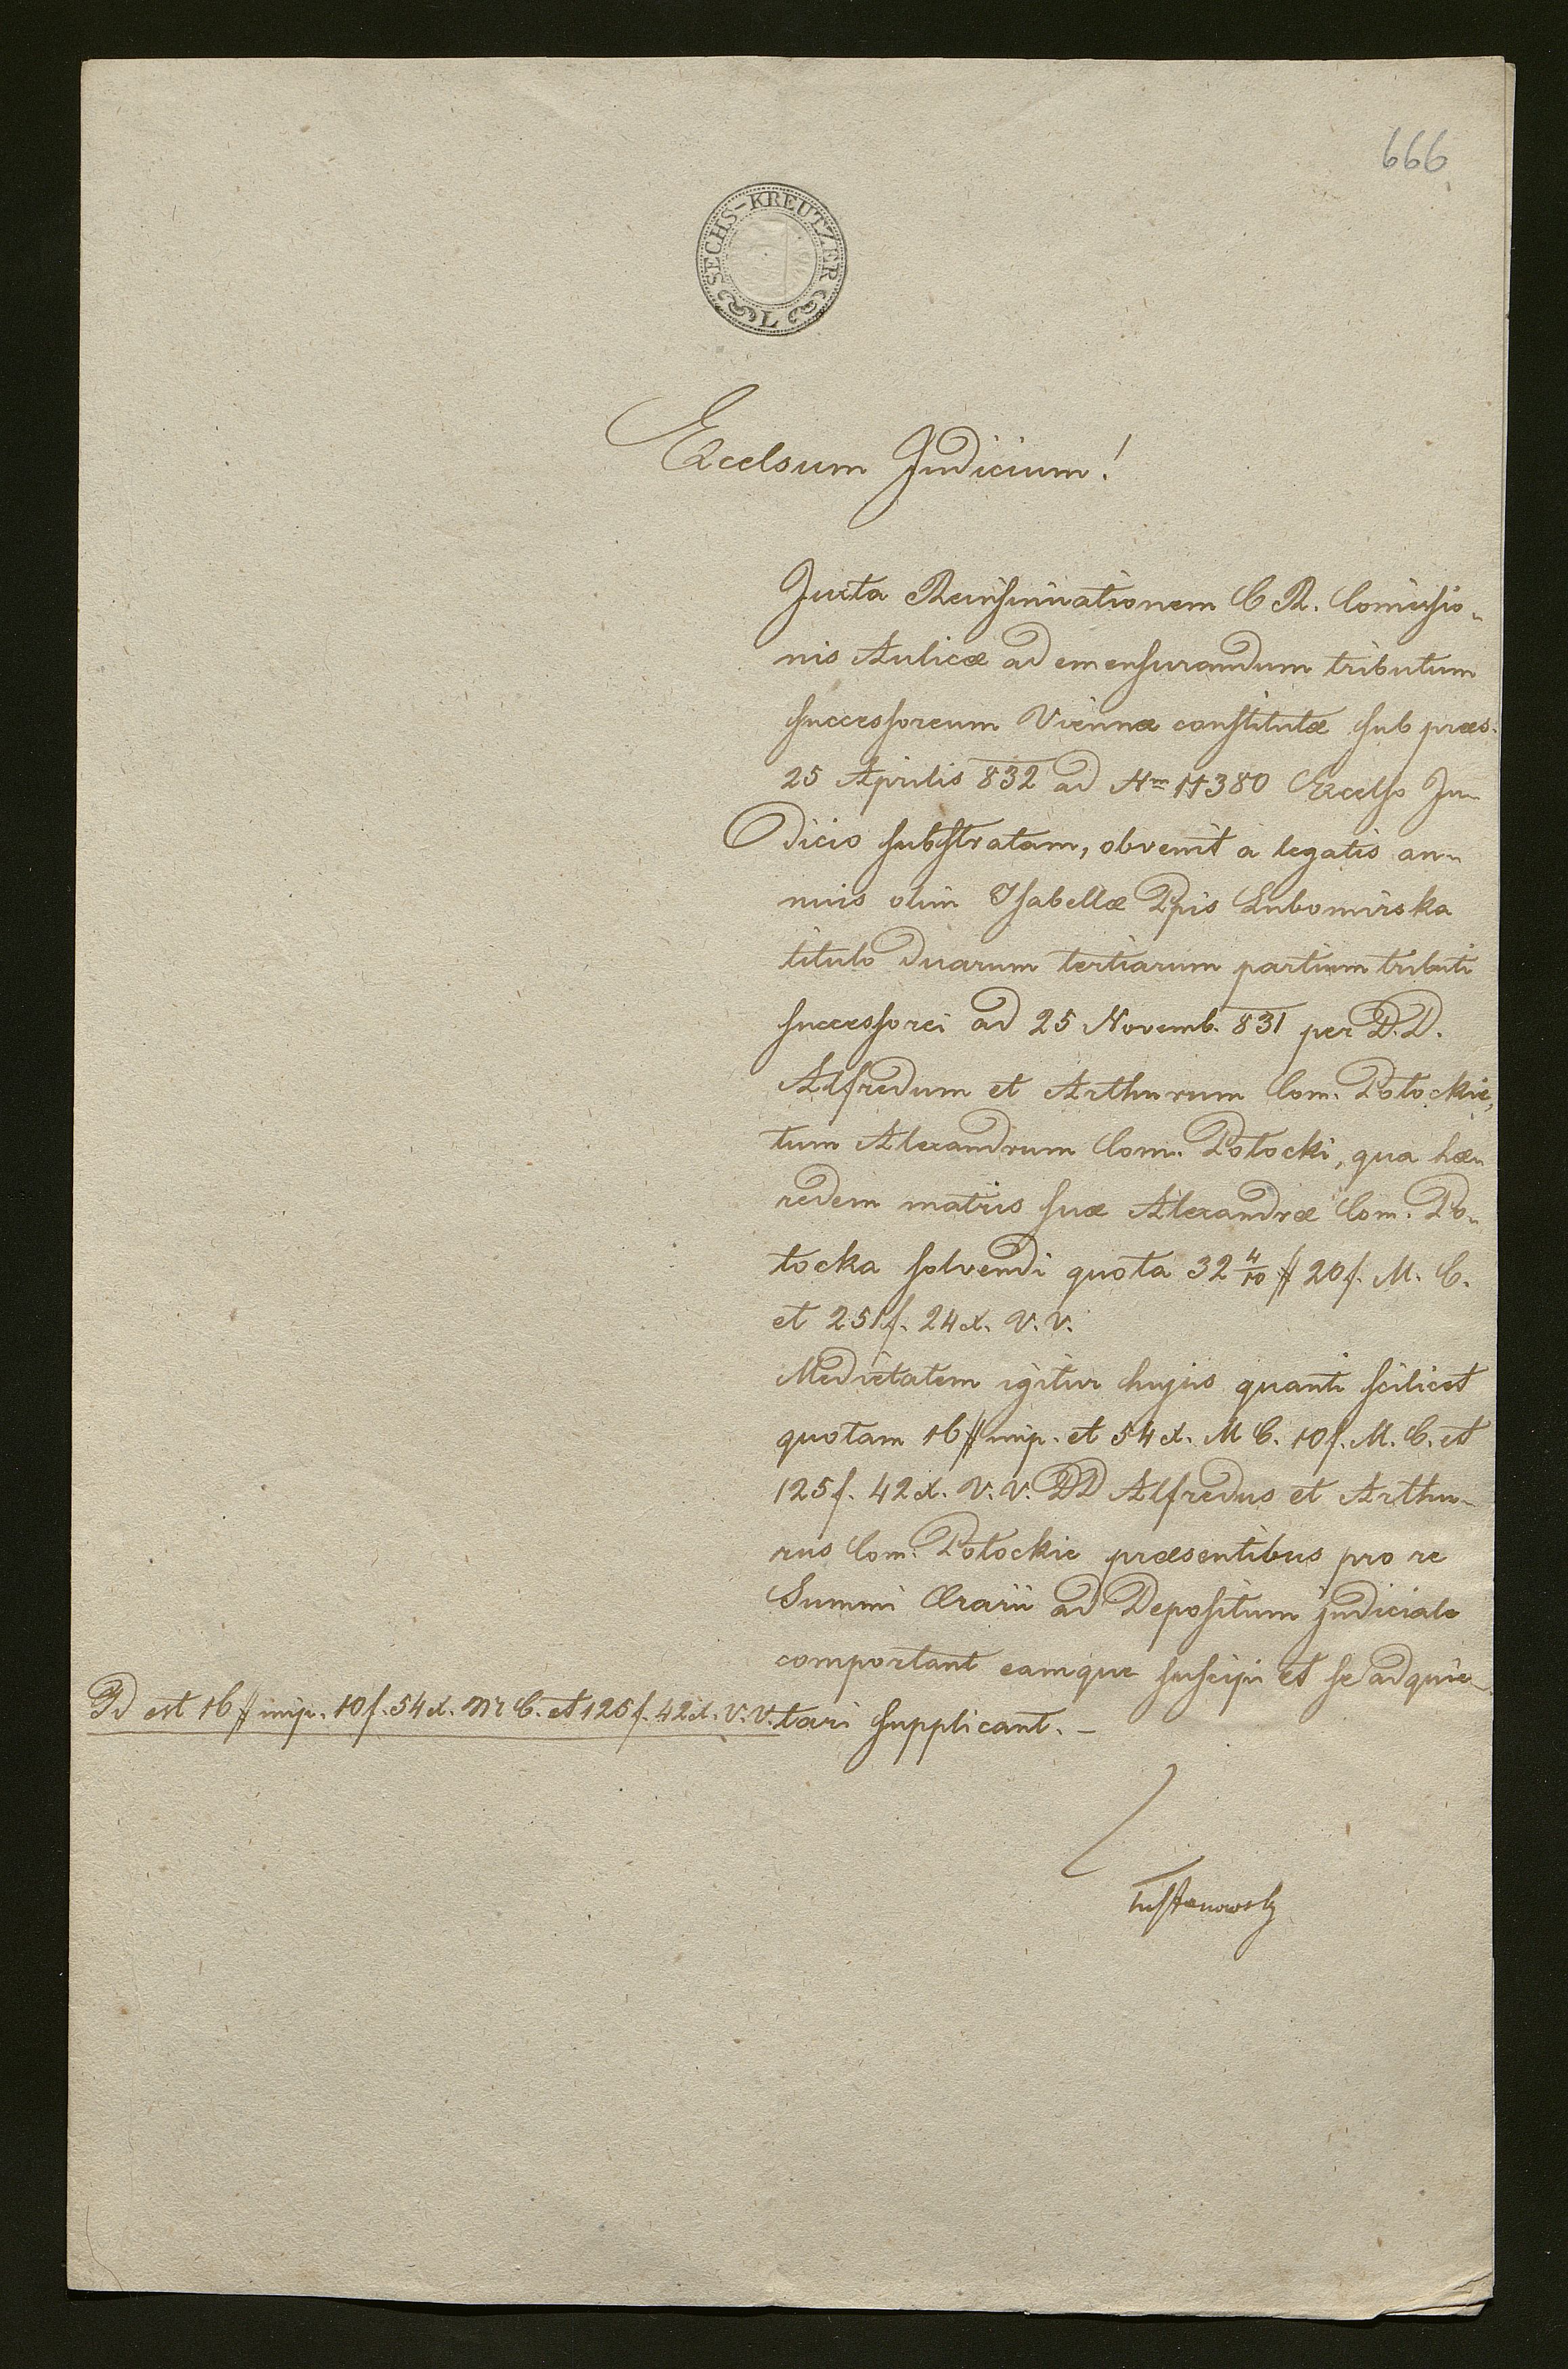 666
SECHS-KREUTZER
L
Excelsum Judicium!
Juxta Reinsinuationem C. R. Comissio-
nis Aulicæ ad emensurandum tributum
successoreum Viennæ constitutæ sub præs.
25 Aprilis 832 ad Nm 11380 Excelso Ju-
dicio substratam, obvenit a legatis an-
nuis olim Isabellæ Ppis Lubomirska
titulo duarum tertiarum partium tributi
successorei ad 25 Novemb. 831 per D.D.
Alfredum et Arthurum Com. Potockie,
tum Alexandrum Com. Potocki, qua hæ-
redem matris suæ Alexandræ Com. Po-
tocka solvendi quota 32 4/10 # 20 f. M. C.
et 251 f. 24 x. V. V.
Medietatem igitur hujus quanti scilicet
quotam 16 # imp. et 54 x. M C. 10 f. M. C. et
125 f. 42 x. V. V. DD Alfredus et Arthu-
rus Com. Potockie præsentibus pro re
Summi Ærarii ad Depositum judiciale
comportant eamque suscipi et se adquie-
tari supplicant. -
Id est 16 # imp. 10 f. 54 x. M C. et 125 f. 42 x. V. V.
Tustanowsky